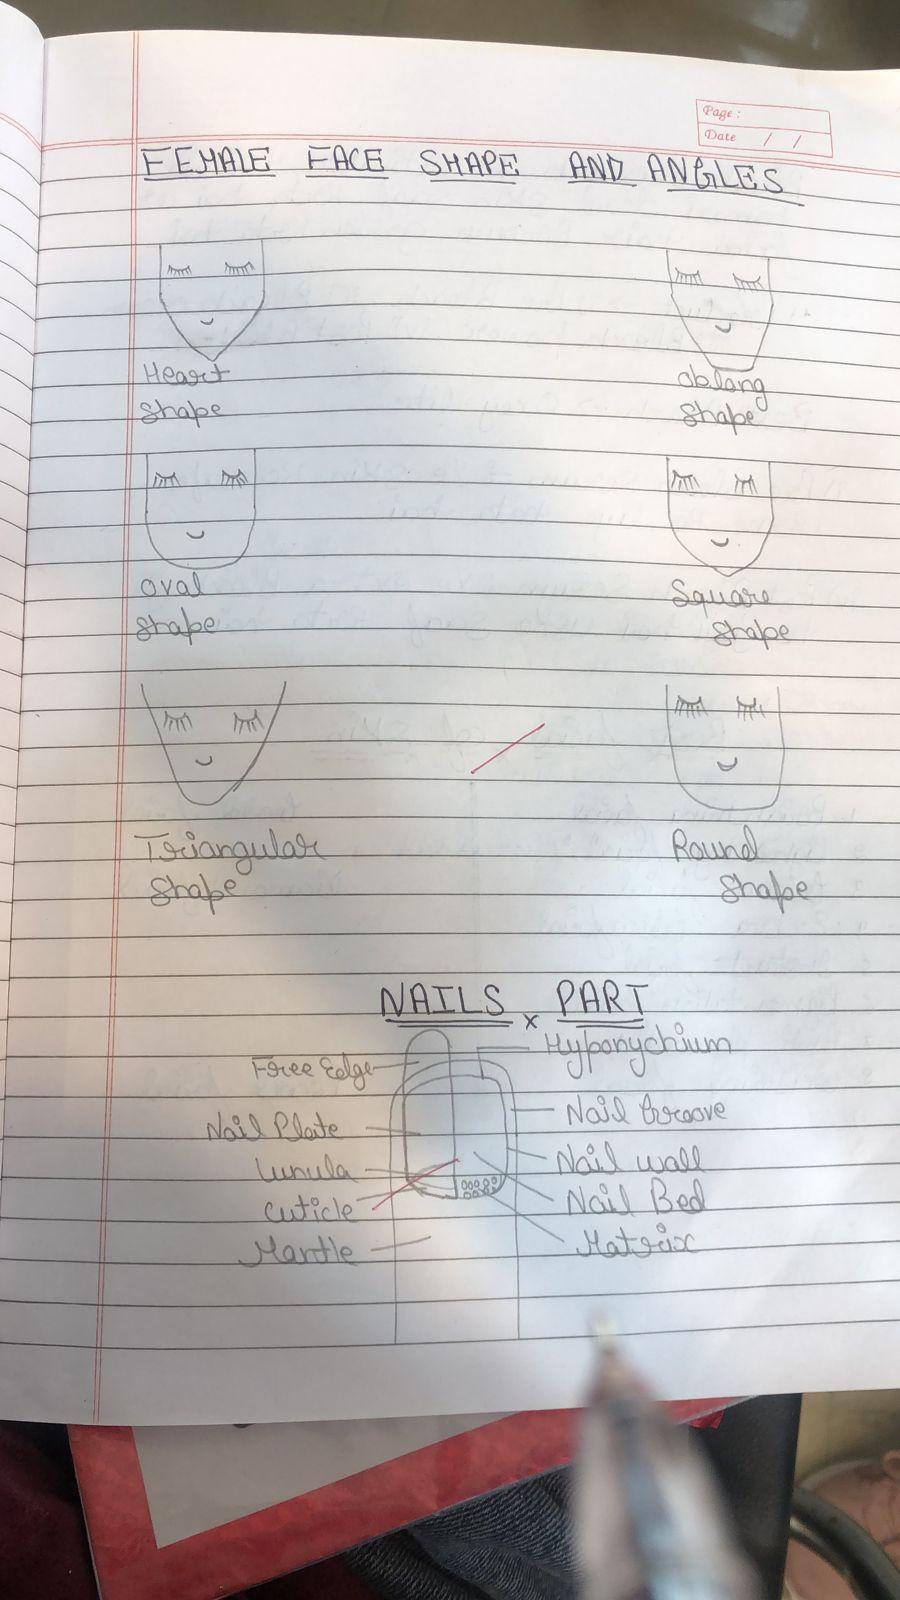 Page :
Date / /
FEMALE FACE SHAPE AND ANGLES
Heart
Shape
oblang
Shape
oval
Shape
Square
Shape
Triangular
Shape
Round
Shape
NAILS x PART
Free Edge
Hyponychium
Nail Plate
Nail Groove
Lunula
Nail wall
Cuticle
Nail Bed
Mantle
Matrix